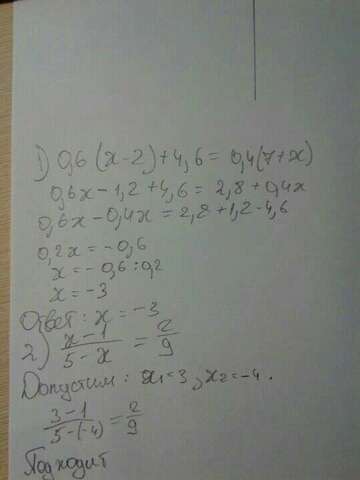 1) 0,6(x-2)+4,6=0,4(7+x)
0,6x-1,2+4,6=2,8+0,4x
0,6x-0,4x=2,8+1,2-4,6
0,2x=-0,6
x=-0,6:0,2
x=-3
Ответ: x=-3
2) x-1/5-x=2/9
Допустим: x1=3, x2=-4.
3-1/5-(-4)=2/9
Подходит